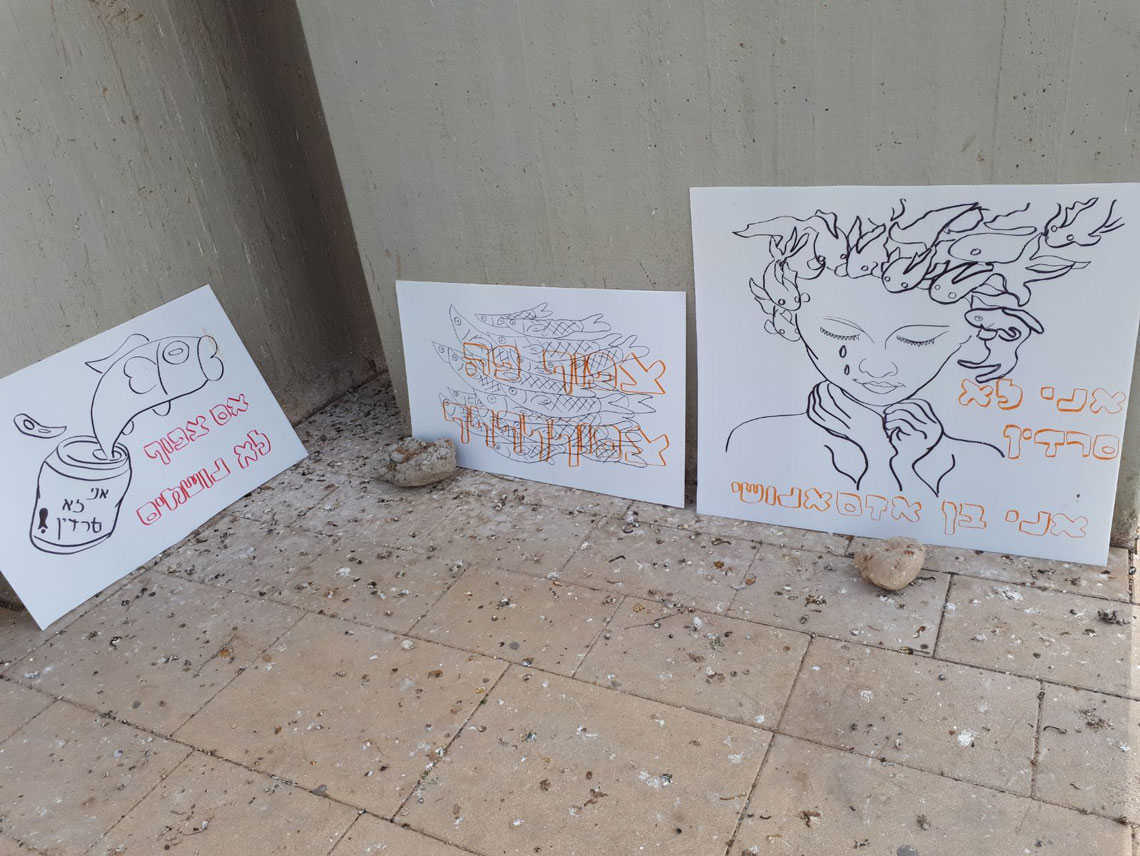 אני לא
סרדין
אני בן אדם אנושי
צפוף פה
אם צפוף
לא נושמים
אני
לא
סרדין!